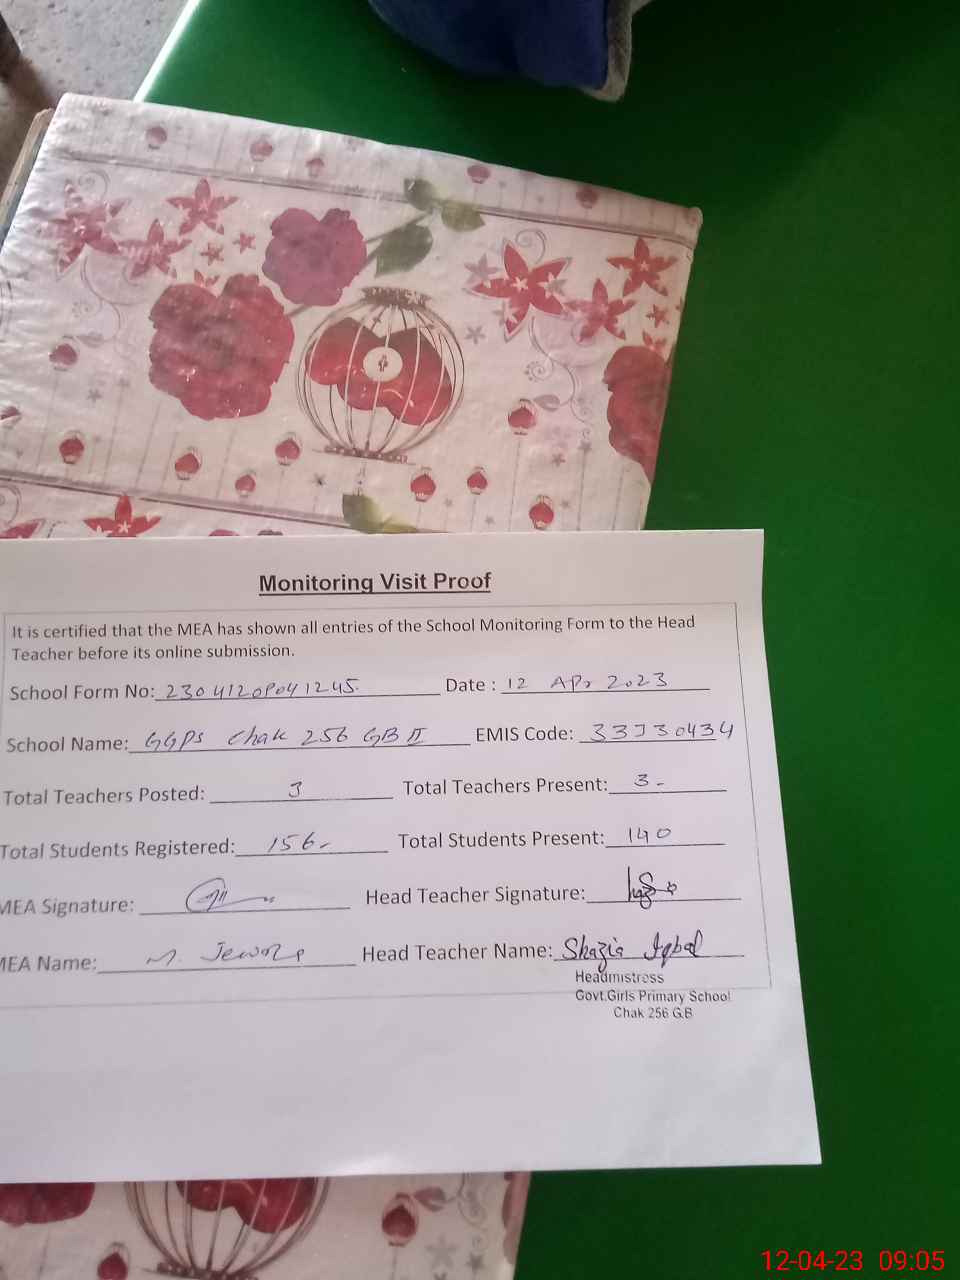 Monitoring Visit Proof
It is certified that the MEA has shown all entries of the School Monitoring Form to the Head
Teacher before its online submission.
School Form No: 230412OP041245. Date : 12 Apr 2023
School Name: GGPS Chak 256 GB II EMIS Code: 33330434
Total Teachers Posted: 3 Total Teachers Present: 3 -
Total Students Registered: 156 - Total Students Present: 140
MEA Signature: Head Teacher Signature:
MEA Name: M. Head Teacher Name: Shazia Iqbal
Headmistress
Govt.Girls Primary School
Chak 256 G.B
12-04-23 09:05